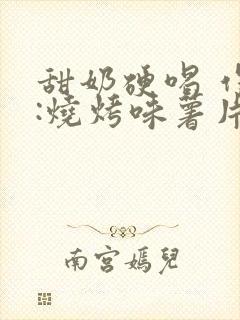 甜奶硬唱
:燒烤味薯片
南宮嫣兒